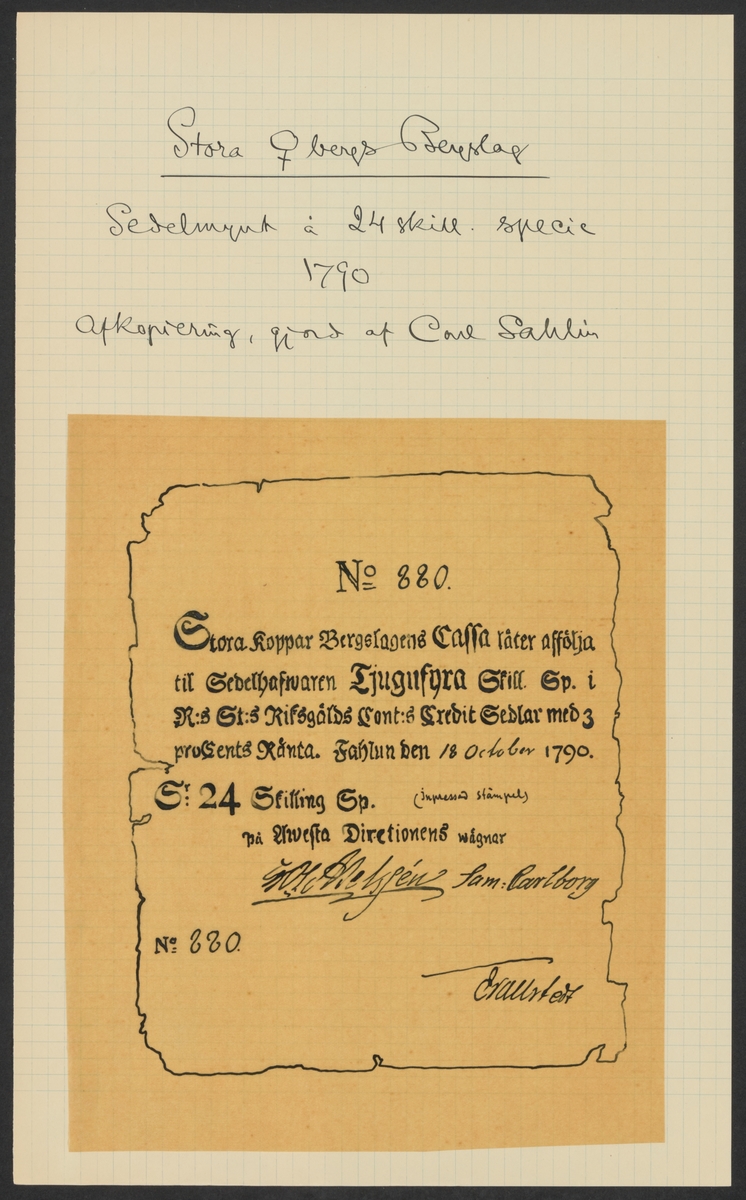 Stora ♀ bergs Bergslag
Sedelmynt à 24 skill. specie
1790
Afkopiering, gjord af Carl Sahlin
No 880.
Stora Koppar Bergslagens Cassa låter affölja
til Sedelhafwaren Tjugufyra Skill. Sp. i
R:s St:s Riksgälds Cont:s Credit Sedlar med 3
proCents Ränta. Fahlun den 18 October 1790.
Sr: 24 Skilling Sp. (inpressad stämpel)
på Awesta Diretionens wägnar
Sam: Carlborg
No 880.